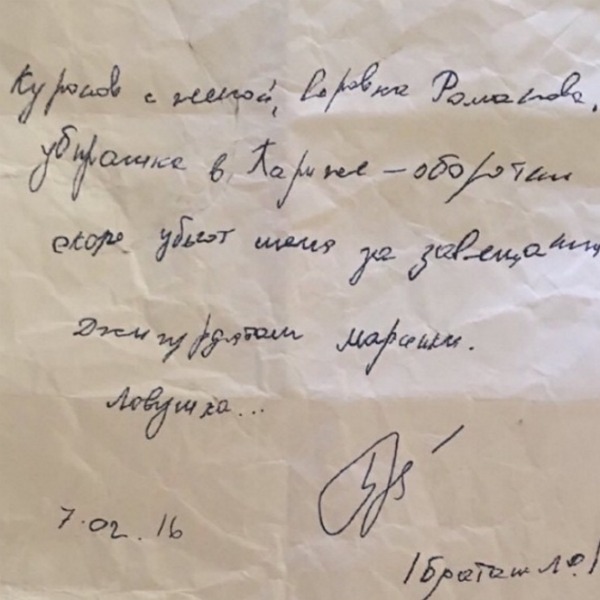 Куросов с женой, воровка Романова,
убирашка в Париже – оборотни
скоро убьют меня за завещания
Джигурдятам марсики.
Ловушка...
7.02.16
/Браташ Л./